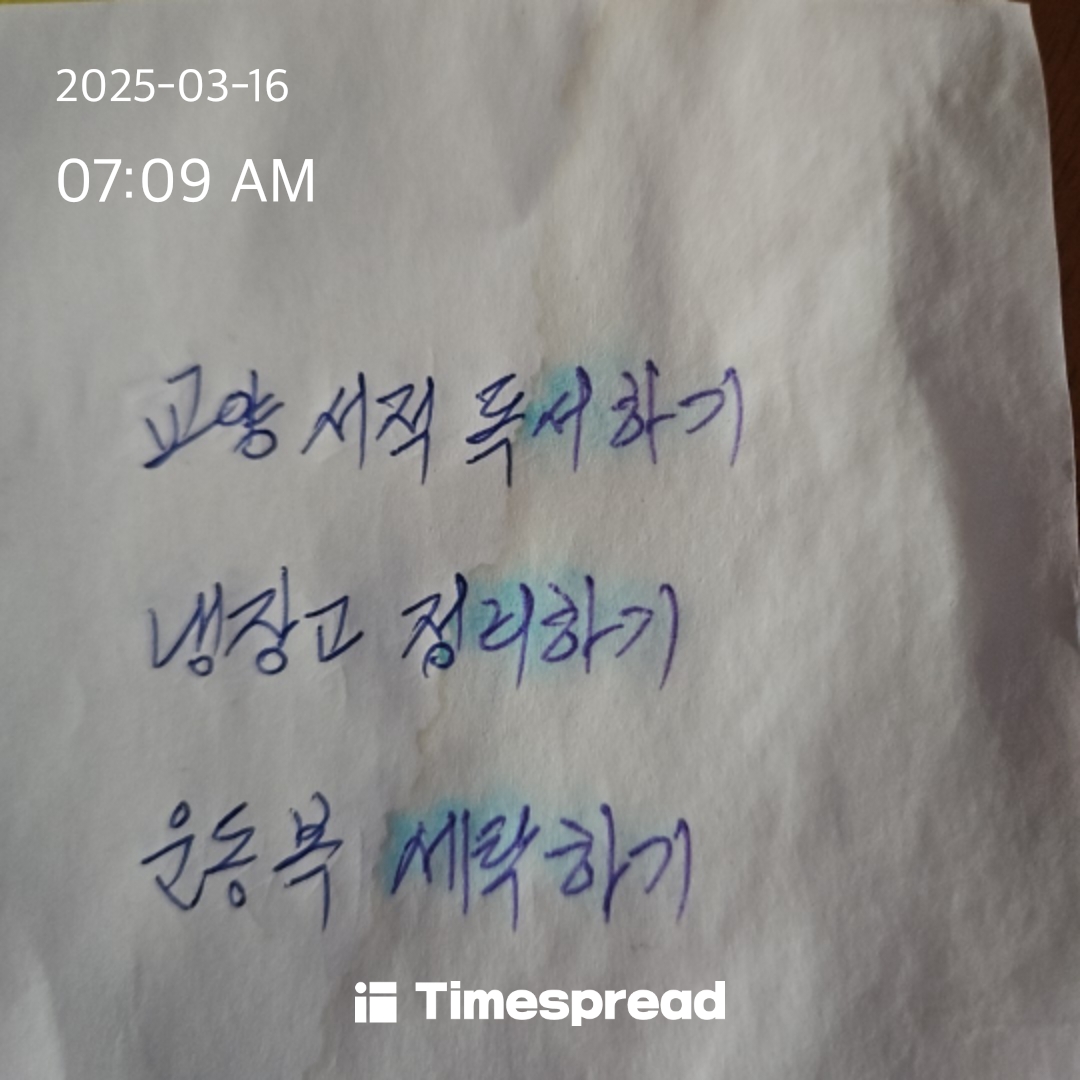 2025-03-16
07:09 AM
교양 서적 독서하기
냉장고 정리하기
운동복 세탁하기
Timespread